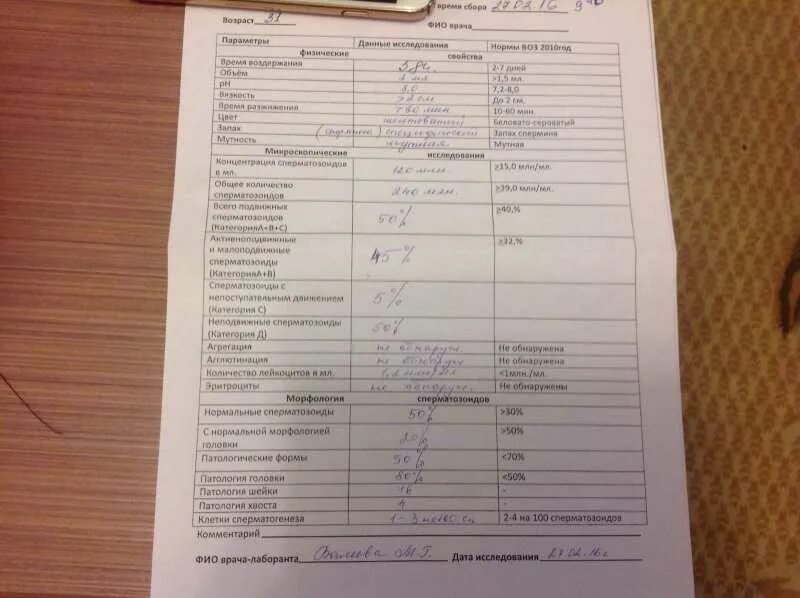 время сбора 27.02.16 9
Возраст 37
ФИО врача
Параметры Данные исследования Нормы ВОЗ 2010год
физические свойства
Время воздержания 2-7 дней
Объём 2 мл >1,5 мл.
pH 8,0 7,2-8,0
Вязкость >2 см До 2 см.
Время разжижения мин 10-60 мин.
Цвет желтоватый Беловато-сероватый
Запах специфический Запах спермина
Мутность мутная Мутная
Микроскопические исследования
Концентрация сперматозоидов
в мл. 120 млн ≥15,0 млн/мл.
Общее количество
сперматозоидов 240 млн. ≥39,0 млн/мл.
Всего подвижных
сперматозоидов
(КатегорияА+В+С) 50% ≥40,%
Активноподвижные
и малоподвижные
сперматозоиды
(КатегорияА+В) 45% ≥32,%
Сперматозоиды с
непоступательным движением
(Категория С) 5%
Неподвижные сперматозоиды
(Категория Д) 50%
Агрегация не обнаруж. Не обнаружена
Агглютинация не обнаруж Не обнаружена
Количество лейкоцитов в мл. <1млн./мл.
Эритроциты не обнаруж. Не обнаружены
Морфология сперматозоидов
Нормальные сперматозоиды 50% >30%
С нормальной морфологией
головки 20% >50%
Патологические формы 50% <70%
Патология головки 80% <50%
Патология шейки 16 -
Патология хвоста 4 -
Клетки сперматогенеза 1-3 на 100 сп 2-4 на 100 сперматозоидов
Комментарий
ФИО врача-лаборанта М.Г. Дата исследования 27.02.16г